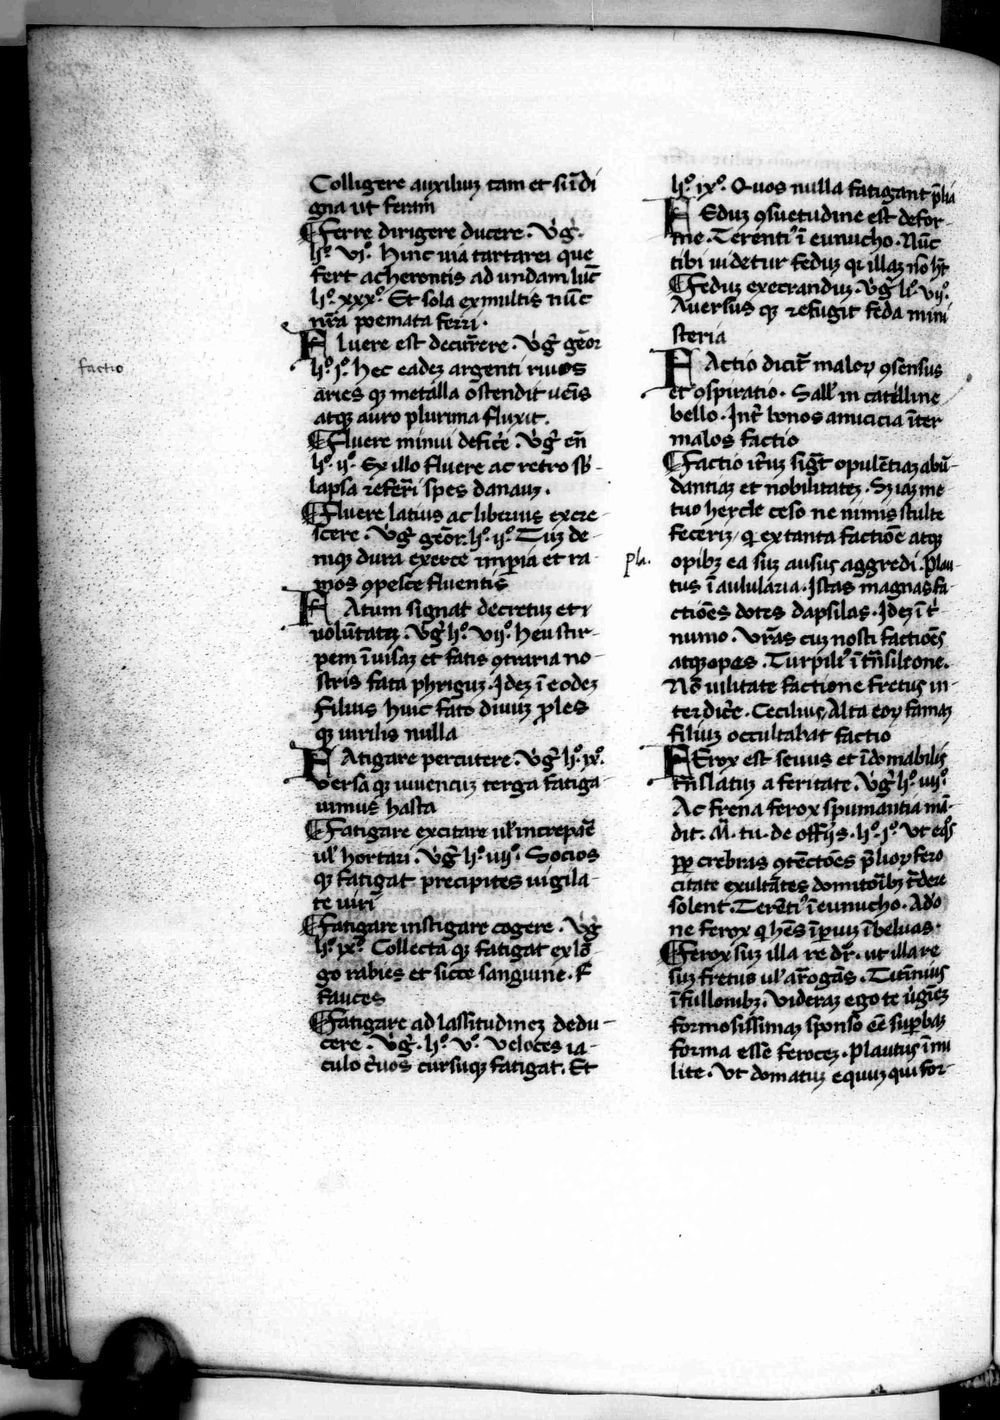 Colligere auxiliuʒ tam et si īdi
gna ut feram
¶Ferre dirigere ducere . v̇g̊.
lıº. vıº. hinc uia tartarei que
fert acherontis ad undam luc̄
lıº. xxxº. Et sola ex multis nūc
nr̄a poemata ferri .
Fluere est decur̄ere . v̇g̊ geor̄
lıº. ıº. hec eadeʒ argenti riuos
aries qʒ metalla ostendit uēis
atqʒ auro plurima fluxit .
¶Fluere minui defic̄e . v̇g̊ en̄
lıº. ıı̊. Ex illo fluere ac retro sb̄-
lapsa referr̄i spes danauʒ .
¶Fluere latius ac liberius excre-
scere . v̇g̊ geor̄. lıº. ıı̊. Tuʒ de-
niqʒ dura exerce impia et ra
mos ꝯpesce fluentis
Fatum signat decretuʒ et
uolūtateʒ . v̇g̊ lıº. vıı̊. heu stir-
pem īuisaʒ et fatis ꝯtraria no-
stris fata phriguʒ . Ideʒ ī eodeʒ
Filius huic fato diuuʒ ꝓles
qʒ uirilis nulla
Fatigare percutere . v̇g̊ lıº. ıxº.
versa qʒ iuuencuʒ terga fatiga
uimus hasta
¶Fatigare excitare ul̄ increpar̄e
ul̄ hortari . v̇g̊ lıº. ıııı̊. Socios
qʒ fatigat precipites uigila-
te uiri
¶Fatigare instigare cogere . v̇g̊
lıº. ıxº. Collecta qʒ fatigat ex lō
go rabies et sicce sanguine . F
fauces
¶Fatigare ad lassitudineʒ dedu-
cere . v̇g̊. lıº. vº. veloces ia-
culo c̄uos cursuqʒ fatigat . Et
lıº. ıxº. Quos nulla fatigant p̄lia
Feduʒ ꝯsuetudine est defor-
me . Terenti⁹ ī eunucho . Nūc
tibi uidetur feduʒ qꝛ illaʒ nō h̄t
¶Feduʒ execranduʒ . v̇g̊ lıº. vıı̊.
Auersus qʒ refugit feda mini
steria
Factio dicit̄ maloꝝ ꝯsensus
et ꝯspiratio . Sall̄ in catelline
bello . Int̄ bonos amicicia īter
malos factio
¶Factio it̄uʒ sig̅t opulētiaʒ abū-
dantiaʒ et nobilitateʒ . Sʒ iaʒ me-
tuo hercle ceso ne nimis stulte
feceriʒ / qꝛ ex tanta factiōe atqʒ
opibʒ ea suʒ ausus aggredi . Plau-
tus ī aululāria . Istas magnas fa-
ctiōes dotes dapsilas . Ideʒ ī t̄
numo . vr̄as cuʒ nosti factiōes
atqʒ opes . Turpili⁹ ī t̄n̄sileone .
Nō uilitate factione fretus in-
terdic̄e . Cecilius / Alta eoꝝ famaʒ
filiuʒ occultabat factio
Ferox est seuus et īdomabilis
t̄n̄slatuʒ a feritate . v̇g̊ lıº. ıııı̊.
Ac frena ferox spumantia mā-
dit . M̄. tu. de offīis . lıº. ıº. ut eq̊s
ꝓp̄ crebras ꝯtētōes p̄lioꝝ fero
citate exultātes domitoribʒ t̄dere
solent . Terēti⁹ ī eunucho . Ado
ne ferox qꝛ hēs īperiuʒ ī beluas .
¶Ferox suʒ illa re dr̄ . ut illa re
suʒ fretus ul̄ ar̄ogās . Titīnius
ī fullonibʒ . videraʒ ego te uirgīeʒ
formosissimaʒ sponso eē suꝑbaʒ
forma esse feroceʒ . Plautus ī mi
lite . ut domatuʒ equuʒ qui for-
factio
pla.